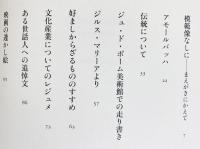 模範像なしに——まえがきにかえて 7
アモールバッハ 22
伝統について 33
ジュ・ド・ポーム美術館での走り書き
ジルス・マリーアより 57
好ましからざるもののすすめ 63
文化産業についてのレジュメ 73
ある世話人への追悼文 86
映画の透かし絵 93